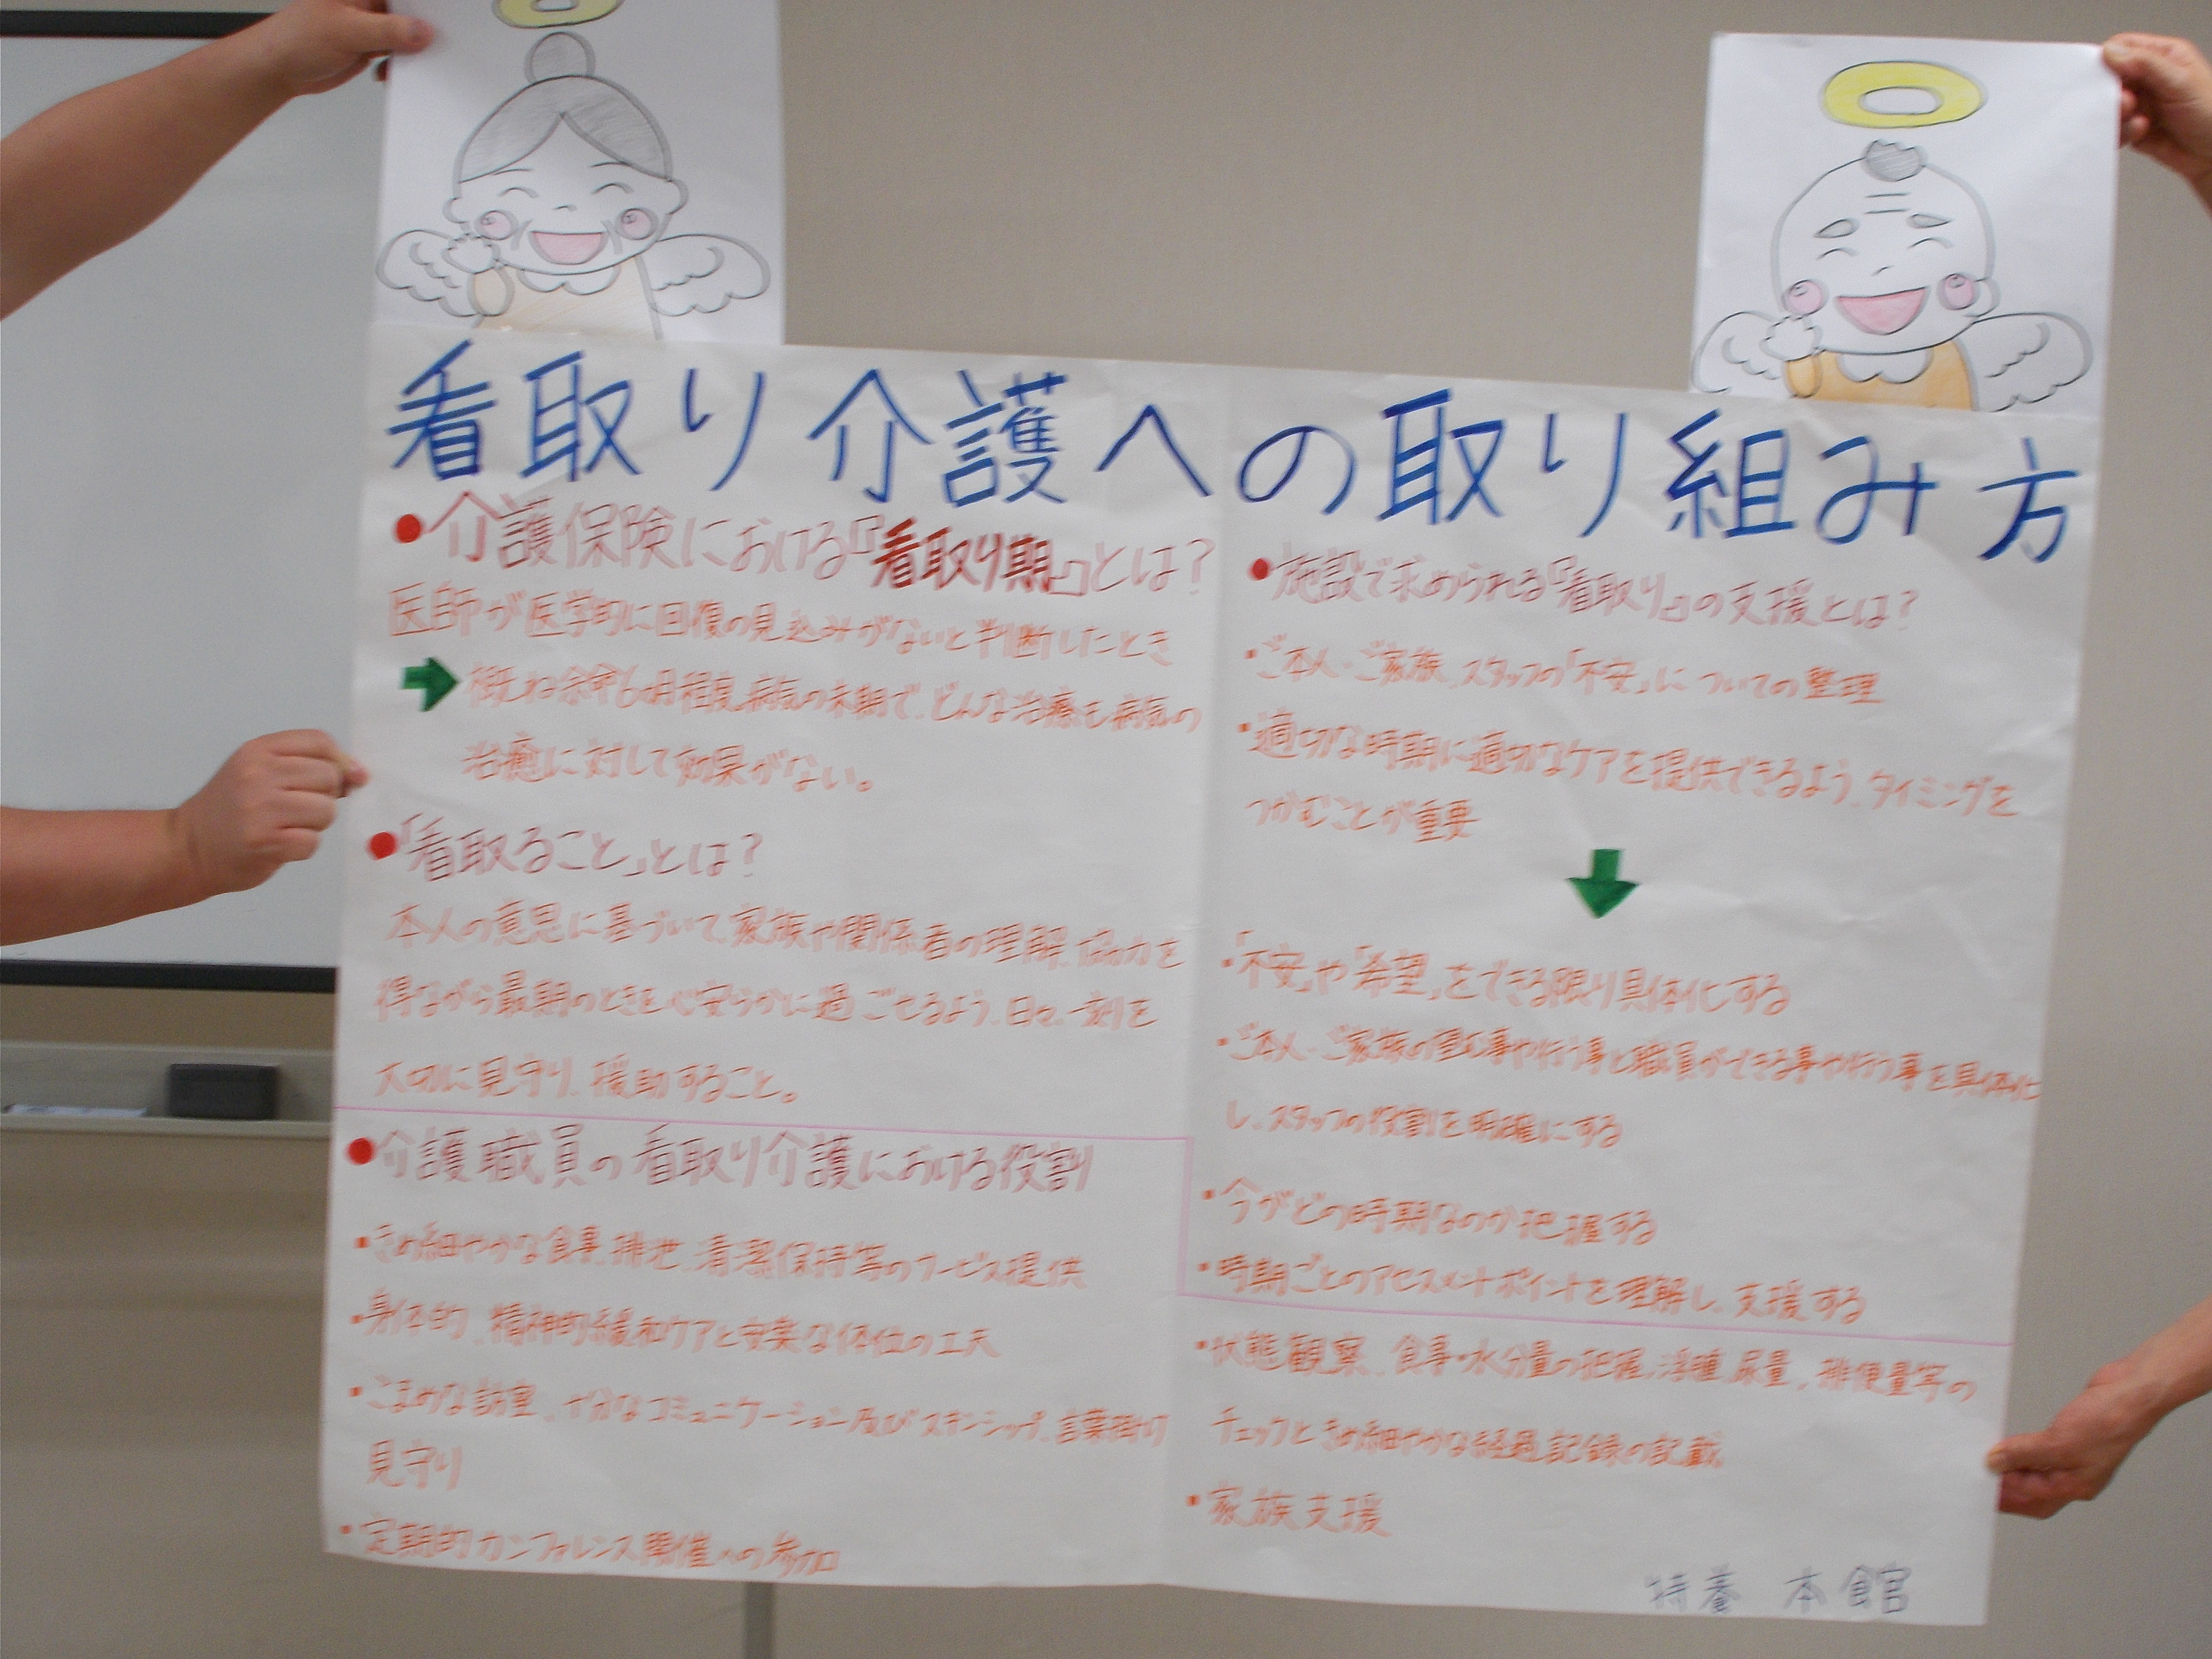 看取り介護への取り組み方
●介護保険における『看取り期』とは？
医師が医学的に回復の見込みがないと判断したとき
➡概ね余命6ヶ月程度、病気の末期で、どんな治療も病気の
治癒に対して効果がない。
●「看取ること」とは？
本人の意思に基づいて、家族や関係者の理解、協力を
得ながら最期のときを心安らかに過ごせるよう、日々、一刻を
大切に見守り、援助すること。
●介護職員の看取り介護における役割
・きめ細やかな食事、排泄、清潔保持等のサービス提供
・身体的、精神的緩和ケアと安楽な体位の工夫
・こまめな訪室、十分なコミュニケーション及びスキンシップ、言葉掛け
見守り
・定期的カンファレンス開催への参加
●施設で求められる『看取り』の支援とは？
・ご本人・ご家族、スタッフの「不安」についての整理
・適切な時期に適切なケアを提供できるよう、タイミングを
つかむことが重要
⬇
・「不安」や「希望」をできる限り具体化する
・ご本人・ご家族の望む事や行う事と職員ができる事や行う事を具体化
し、スタッフの役割を明確にする
・今がどの時期なのか把握する
・時期ごとのアセスメントポイントを理解し、支援する
・状態観察、食事・水分量の把握、浮腫、尿量、排便量等の
チェックときめ細やかな経過記録の記載
・家族支援
特養 本館